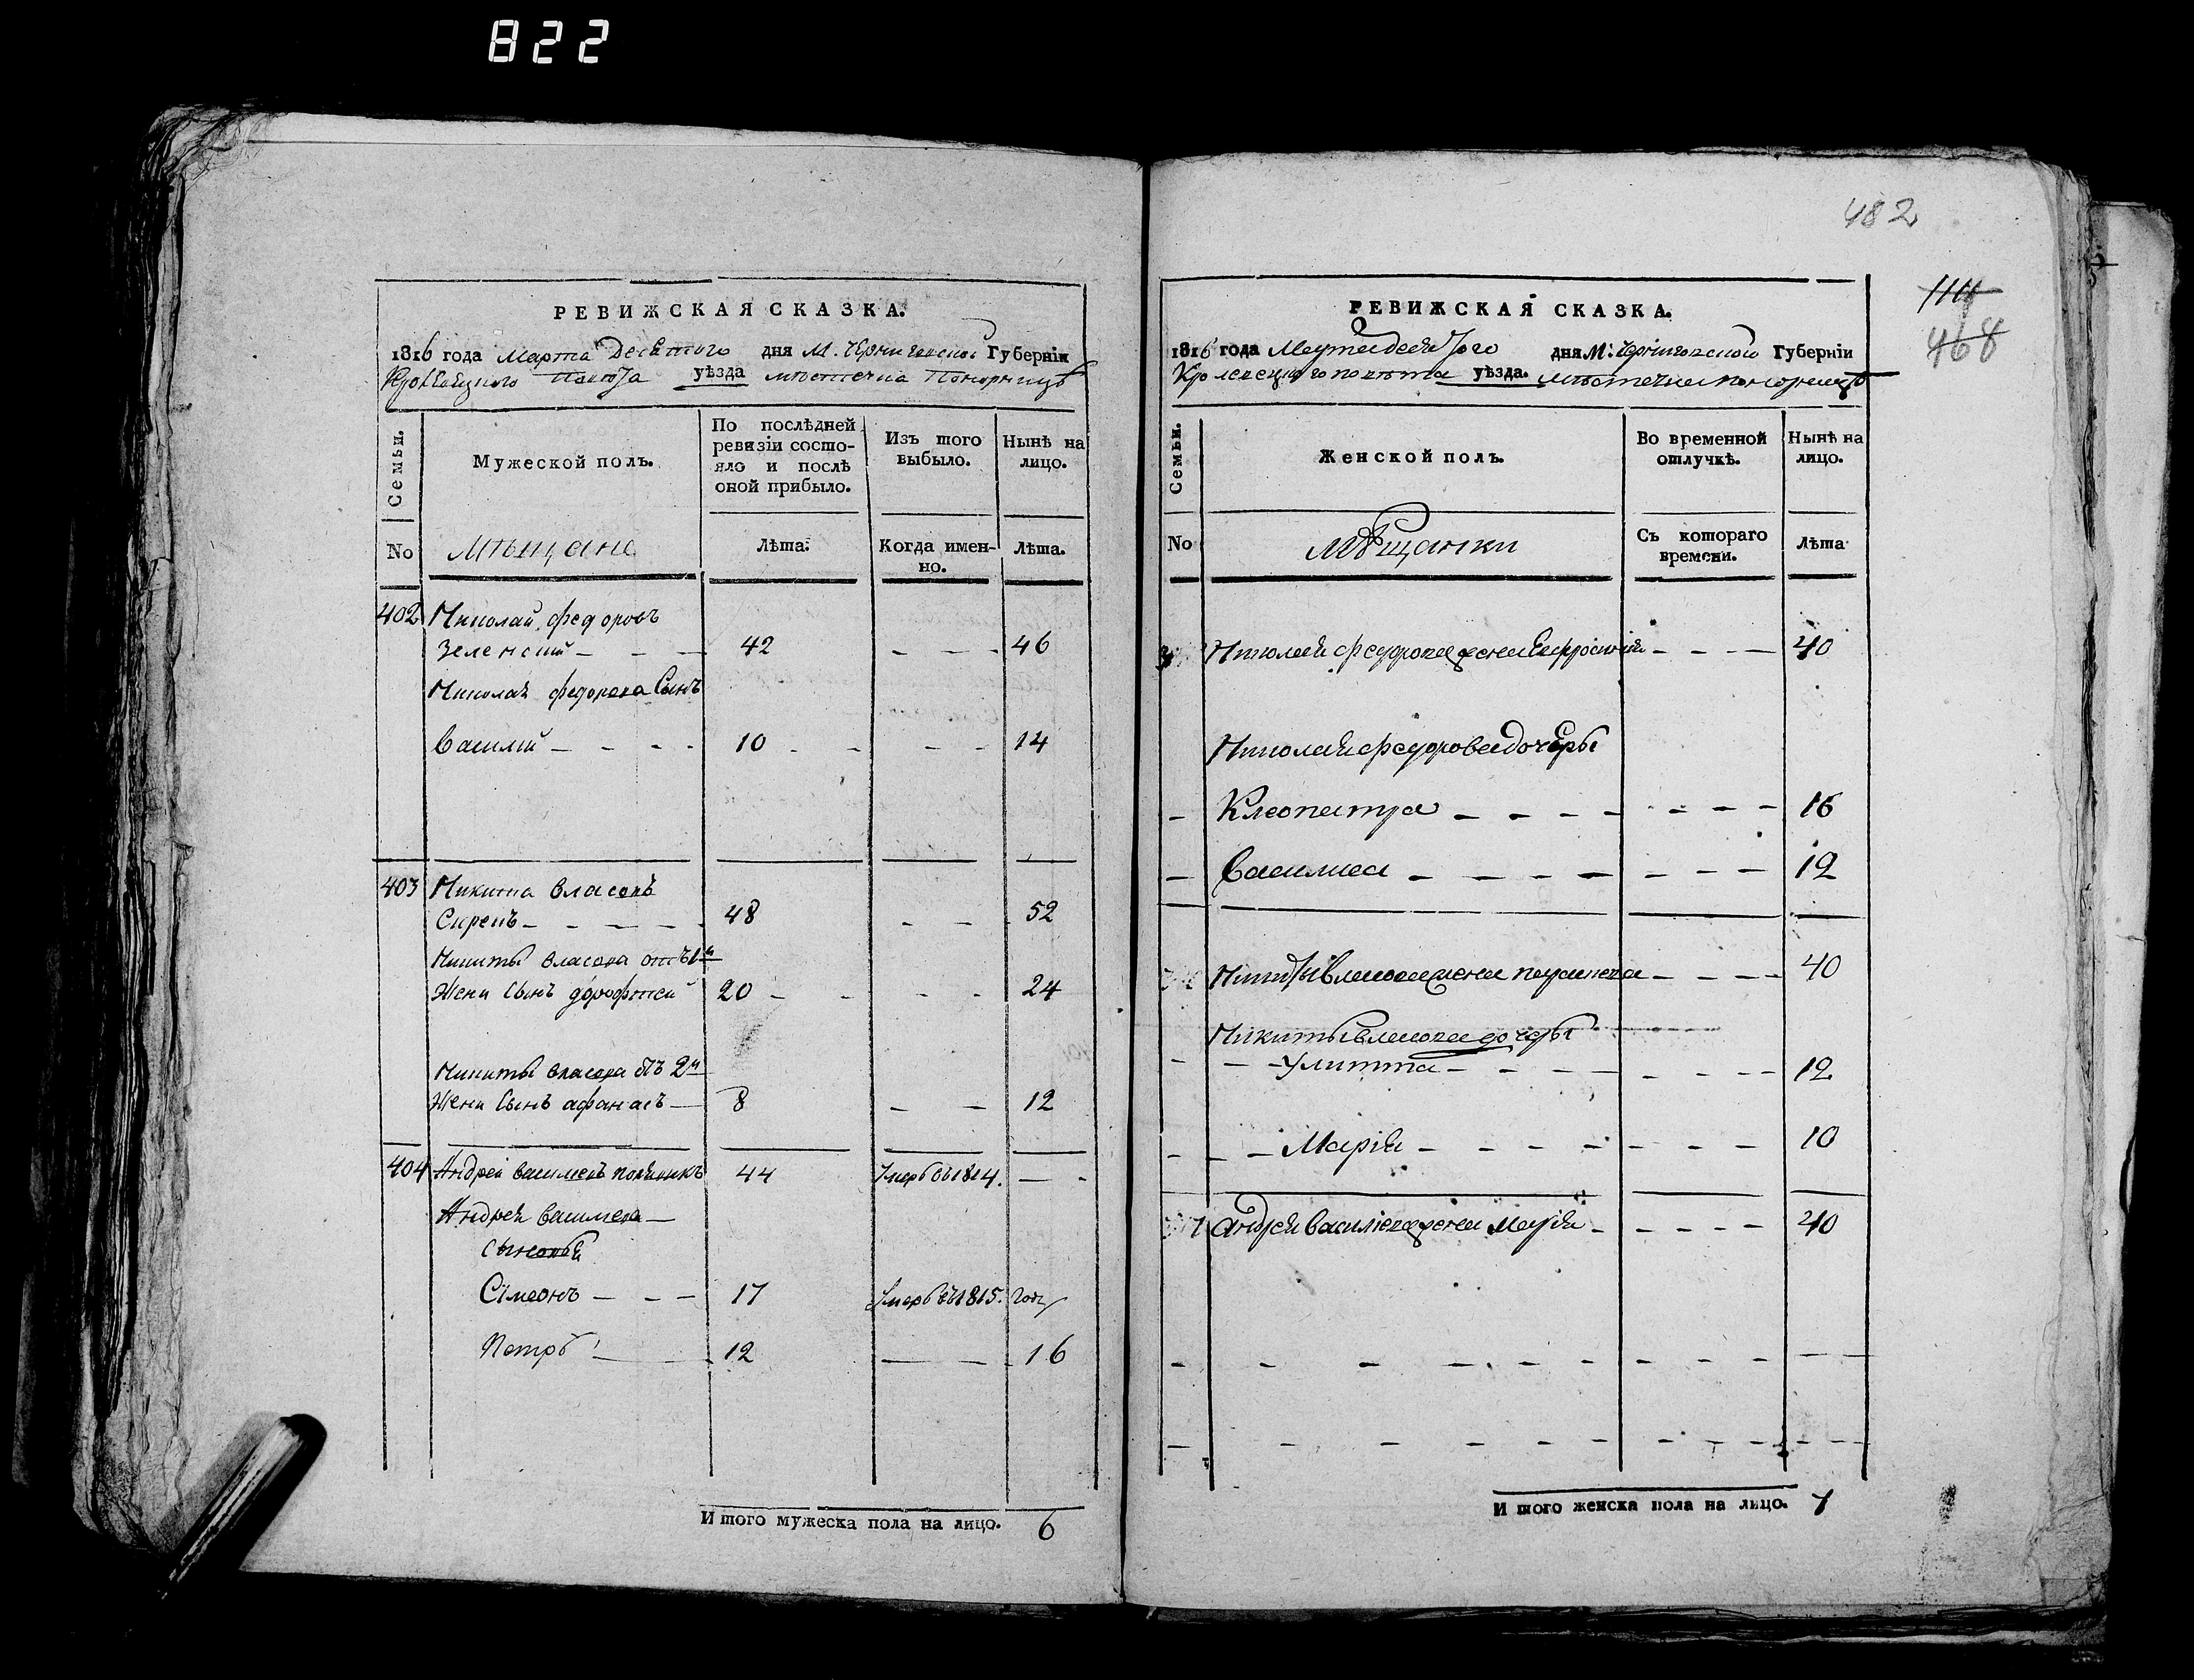 822
РЕВИЖСКАЯ СКАЗКА.
1816 года Марта Десятого дня М. Черниговской Губернiи
Кролевецкого Повета уѣзда мѣстечка Понорницѣ
Семьи.
Мужеской полъ.
По послѣдней
ревизiи состо-
яло и послѣ
оной прибыло.
Изъ того
выбыло.
Нынѣ на
лицо.
No
Мѣщане
Лѣта.
Когда имен-
но.
Лѣта.
402 Николай Федоровъ
Зеленский - - - 42 - - - 46
Николая Федорова Сынъ
Василий - - - - 10 - - - - 14
403 Никита Власовъ
Сиренъ - - - - - 48 - - 52
Никиты Власова отъ 1й
Жени Сынъ дорофтей 20 - - - - 24
Никиты Власова отъ 2й
Жени Сынъ афанасъ 8 - - 12
404 Андрей Василевъ 44 Умеръ въ 1814. - -
Андрея Василева
Сыновья
Сiмеонъ - - - 17 Умеръ въ 1815. году
Петръ 12 - - 16
И того мужеска пола на лицо. 6
482
114
468
РЕВИЖСКАЯ СКАЗКА.
1816 года Марта десятого дня М. Черниговской Губернiи
Кролевецкого повѣта уѣзда. мѣстечка понорницѣ
Семьи.
Женской полъ.
Во временной
отлучкѣ.
Нынѣ на
лицо.
No
Мѣщанки
Съ котораго
времени.
Лѣта
Николая Федорова жена Ефросинiя - - - - 40
Николая Федорова дочеры
- Клеопатра - - - - - - - - 16
- Василиса - - - - - - - - 12
Никиты Власова жена - - - - 40
Никиты Власова дочеры
- - - Улитта - - - - - - - - 12
- - - Марiя - - - - - - - - 10
Андрея Василева жена Марiя - - - - - 40
И того женска пола на лицо. 7